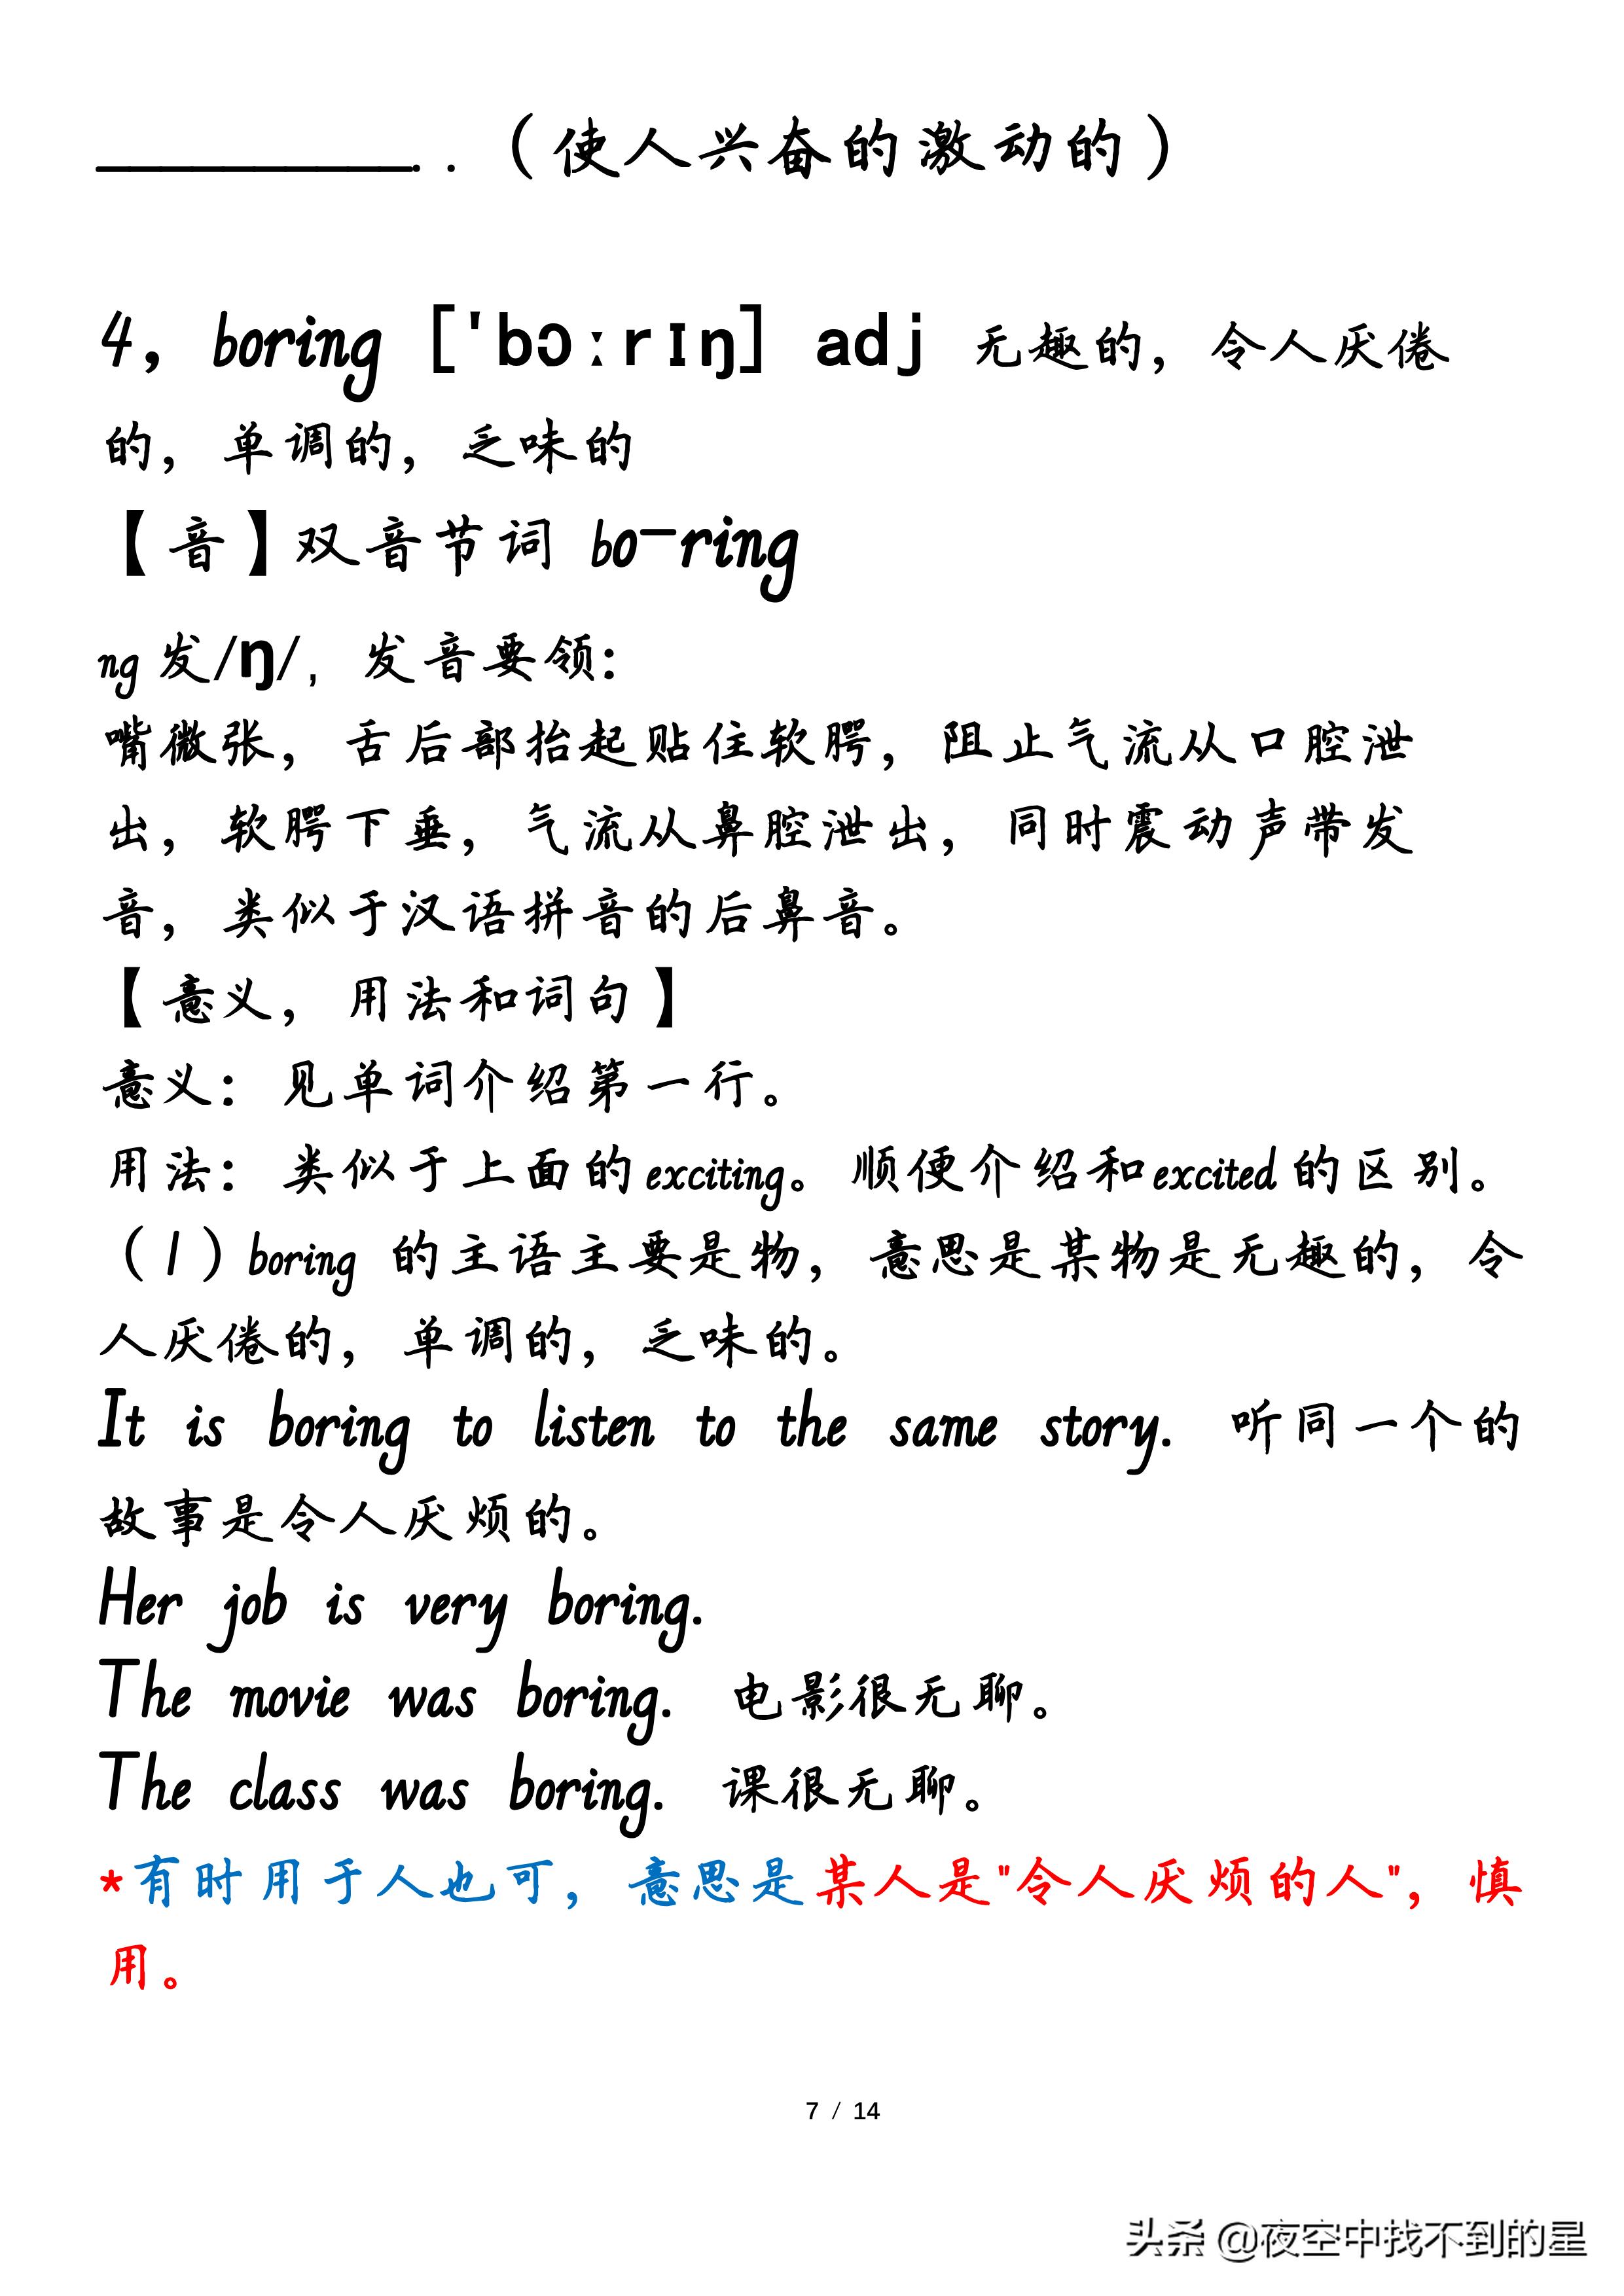 __________. .（使人兴奋的激动的）
4，boring ['bɔːrɪŋ] adj 无趣的，令人厌倦
的，单调的，乏味的
【音】双音节词 bo-ring
ng 发/ŋ/，发音要领：
嘴微张，舌后部抬起贴住软腭，阻止气流从口腔泄
出，软腭下垂，气流从鼻腔泄出，同时震动声带发
音，类似于汉语拼音的后鼻音。
【意义，用法和词句】
意义：见单词介绍第一行。
用法：类似于上面的exciting。顺便介绍和excited的区别。
（1）boring 的主语主要是物，意思是某物是无趣的，令
人厌倦的，单调的，乏味的。
It is boring to listen to the same story. 听同一个的
故事是令人厌烦的。
Her job is very boring.
The movie was boring. 电影很无聊。
The class was boring. 课很无聊。
*有时用于人也可，意思是某人是"令人厌烦的人"，慎
用。
7 / 14
头条 @夜空中找不到的星